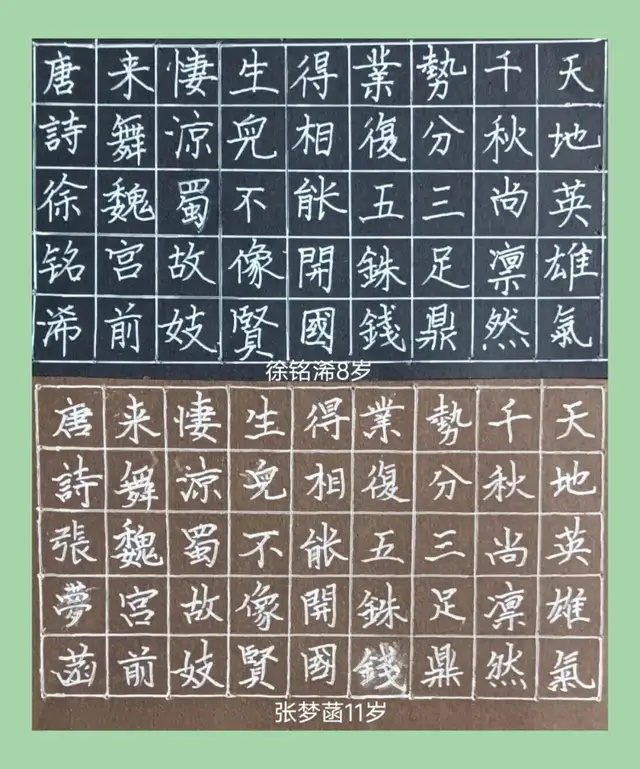 天地英雄氣
千秋尚凛然
勢分三足鼎
業復五銖錢
得相能開國
生兒不像賢
悽涼蜀故妓
来舞魏宫前
唐詩徐铭浠
徐铭浠8岁
天地英雄氣
千秋尚凛然
勢分三足鼎
業復五銖錢
得相能開國
生兒不像賢
悽涼蜀故妓
来舞魏宫前
唐詩張夢菡
张梦菡11岁